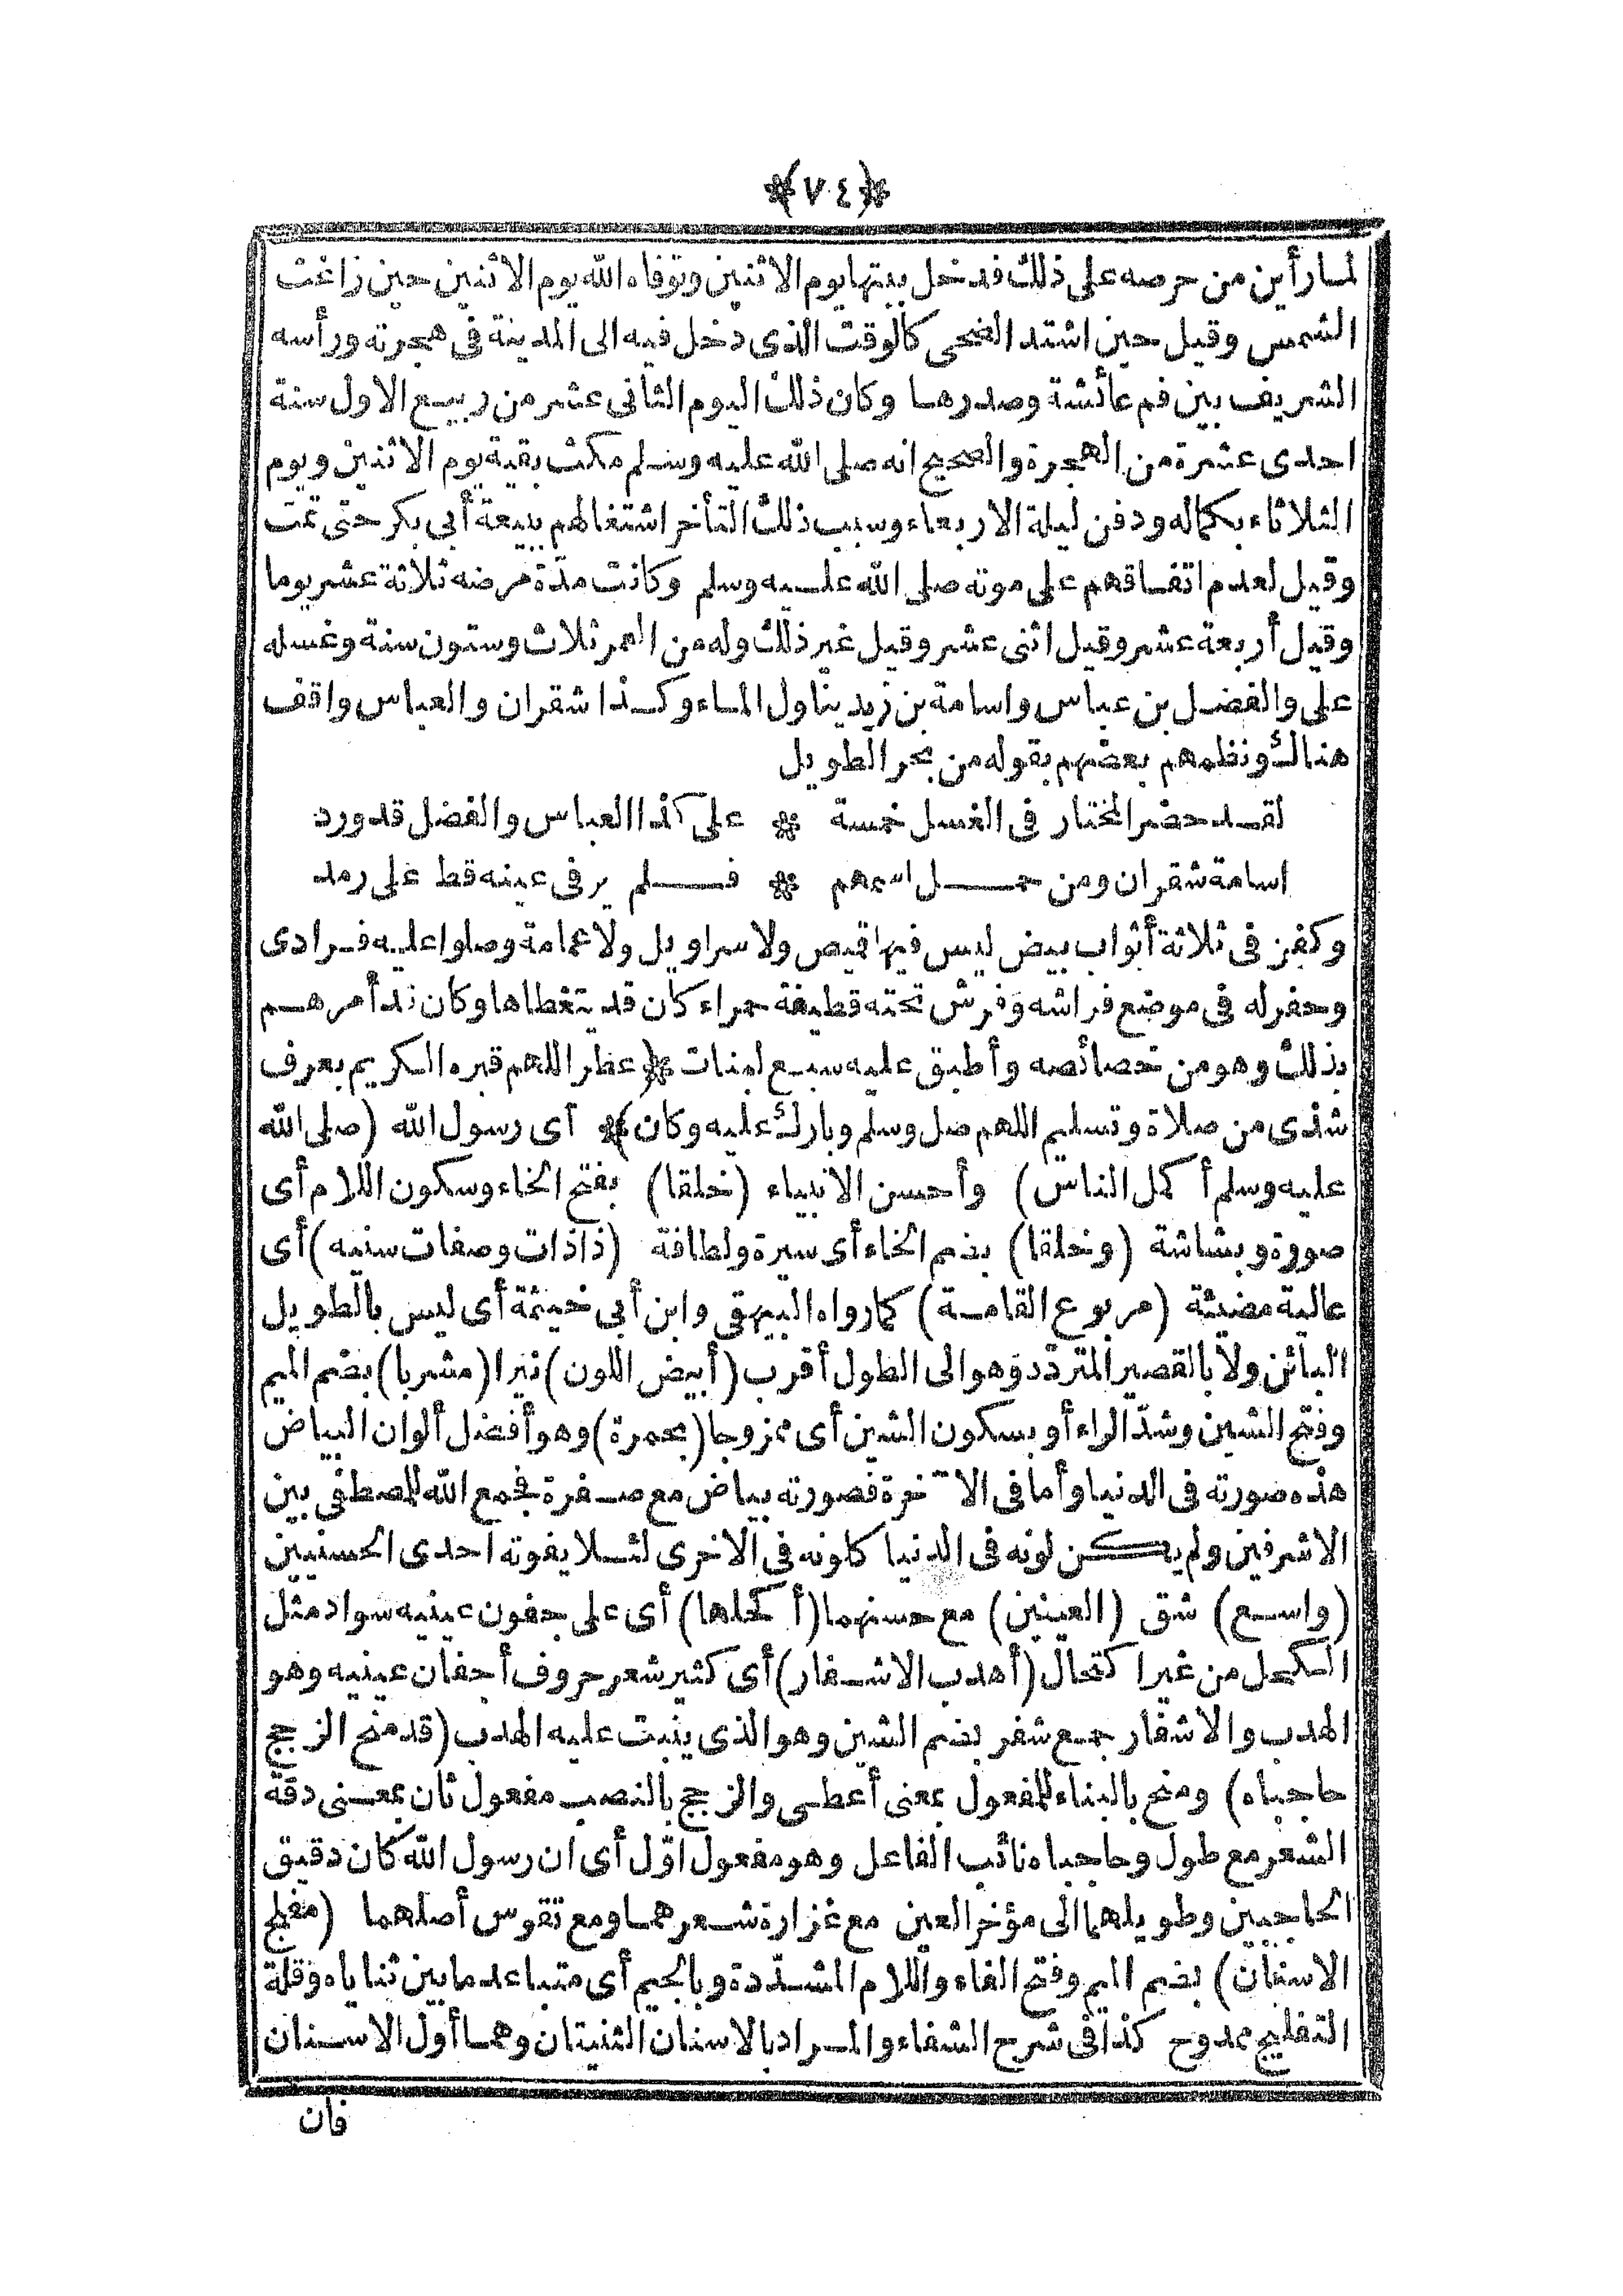 ﴿٧٤﴾
لما رأين من حرصه على ذلك فدخل بيتها يوم الاثنين وتوفاه الله يوم الاثنين حين زاغت
الشمس وقيل حين اشتد الضحى كالوقت الذى دخل فيه الى المدينة فى هجرته ورأسه
الشريف بين فم عائشة وصدرها وكان ذلك اليوم الثانى عشر من ربيع الاول سنة
احدى عشرة من الهجرة والصحيح انه صلى الله عليه وسلم مكث بقية يوم الاثنين ويوم
الثلاثاء بكماله ودفن ليلة الاربعاء وسبب ذلك التأخر اشتغالهم ببيعة أبى بكر حتى تمت
وقيل لعدم اتفاقهم على موته صلى الله عليه وسلم وكانت مدّة مرضه ثلاثة عشر يوما
وقيل أربعة عشر وقيل اثنى عشر وقيل غير ذلك وله من العمر ثلاث وستون سنة وغسله
على والفضل بن عباس واسامة بن زيد يناول الماء وكذا شقران والعباس واقف
هناك ونظمهم بعضهم بقوله من بحر الطويل
لقد حضر المختار فى الغسل خمسة * على كذا العباس والفضل قد ورد
اسامة شقران ومن حمل اسمهم * فلم ير فى عينه قط على رمد
وكفن فى ثلاثة أثواب بيض ليس فيها قميص ولا سراويل ولا عمامة وصلوا عليه فرادى
وحفر له فى موضع فراشه وفرش تحته قطيفة حمراء كان قد يتغطاها وكان قد أمرهم
بذلك وهو من خصائصه وأطبق عليه سبع لبنات ﴿عطر اللهم قبره الكريم بعرف
شذى من صلاة وتسليم اللهم صل وسلم وبارك عليه وكان﴾ أى رسول الله (صلى الله
عليه وسلم أكمل الناس) وأحسن الانبياء (خلقا) بفتح الخاء وسكون اللام أى
صورة وبشاشة (وخلقا) بضم الخاء أى سيرة ولطافة (ذا ذات وصفات سنيه) أى
عالية مضيئة (مربوع القامة) كما رواه البيهقى وابن أبى خيثمة أى ليس بالطويل
البائن ولا بالقصير المتردّد وهو الى الطول أقرب (أبيض اللون) نيرا (مشربا) بضم الميم
وفتح الشين وشدّ الراء أو بسكون الشين أى ممزوجا (بحمرة) وهو أفضل ألوان البياض
هذه صورته فى الدنيا وأما فى الآخرة فصورته بياض مع صفرة فجمع الله للمصطفى بين
الاشرفين ولم يكن لونه فى الدنيا كلونه فى الاخرى لئلا يفوته احدى الحسنيين
(واسع) شق (العينين) مع حسنهما (أكحلها) أى على جفون عينيه سواد مثل
الكحل من غير اكتحال (أهدب الاشفار) أى كثير شعر حروف أجفان عينيه وهو
الهدب والاشفار جمع شفر بضم الشين وهو الذى ينبت عليه الهدب (قد منح الزجج
حاجباه) ومنح بالبناء للمفعول بمعنى أعطى والزجج بالنصب مفعول ثان بمعنى دقة
الشعر مع طول وحاجباه نائب الفاعل وهو مفعول اوّل أى ان رسول الله كان دقيق
الحاجبين وطويلهما الى مؤخر العين مع غزارة شعرهما ومع تقوس أصلهما (مفلج
الاسنان) بضم الميم وفتح الفاء واللام المشدّدة وبالجيم أى متباعد ما بين ثناياه وقلة
التفليج ممدوح كذا فى شرح الشفاء والمراد بالاسنان الثنيتان وهما أول الاسنان
فان